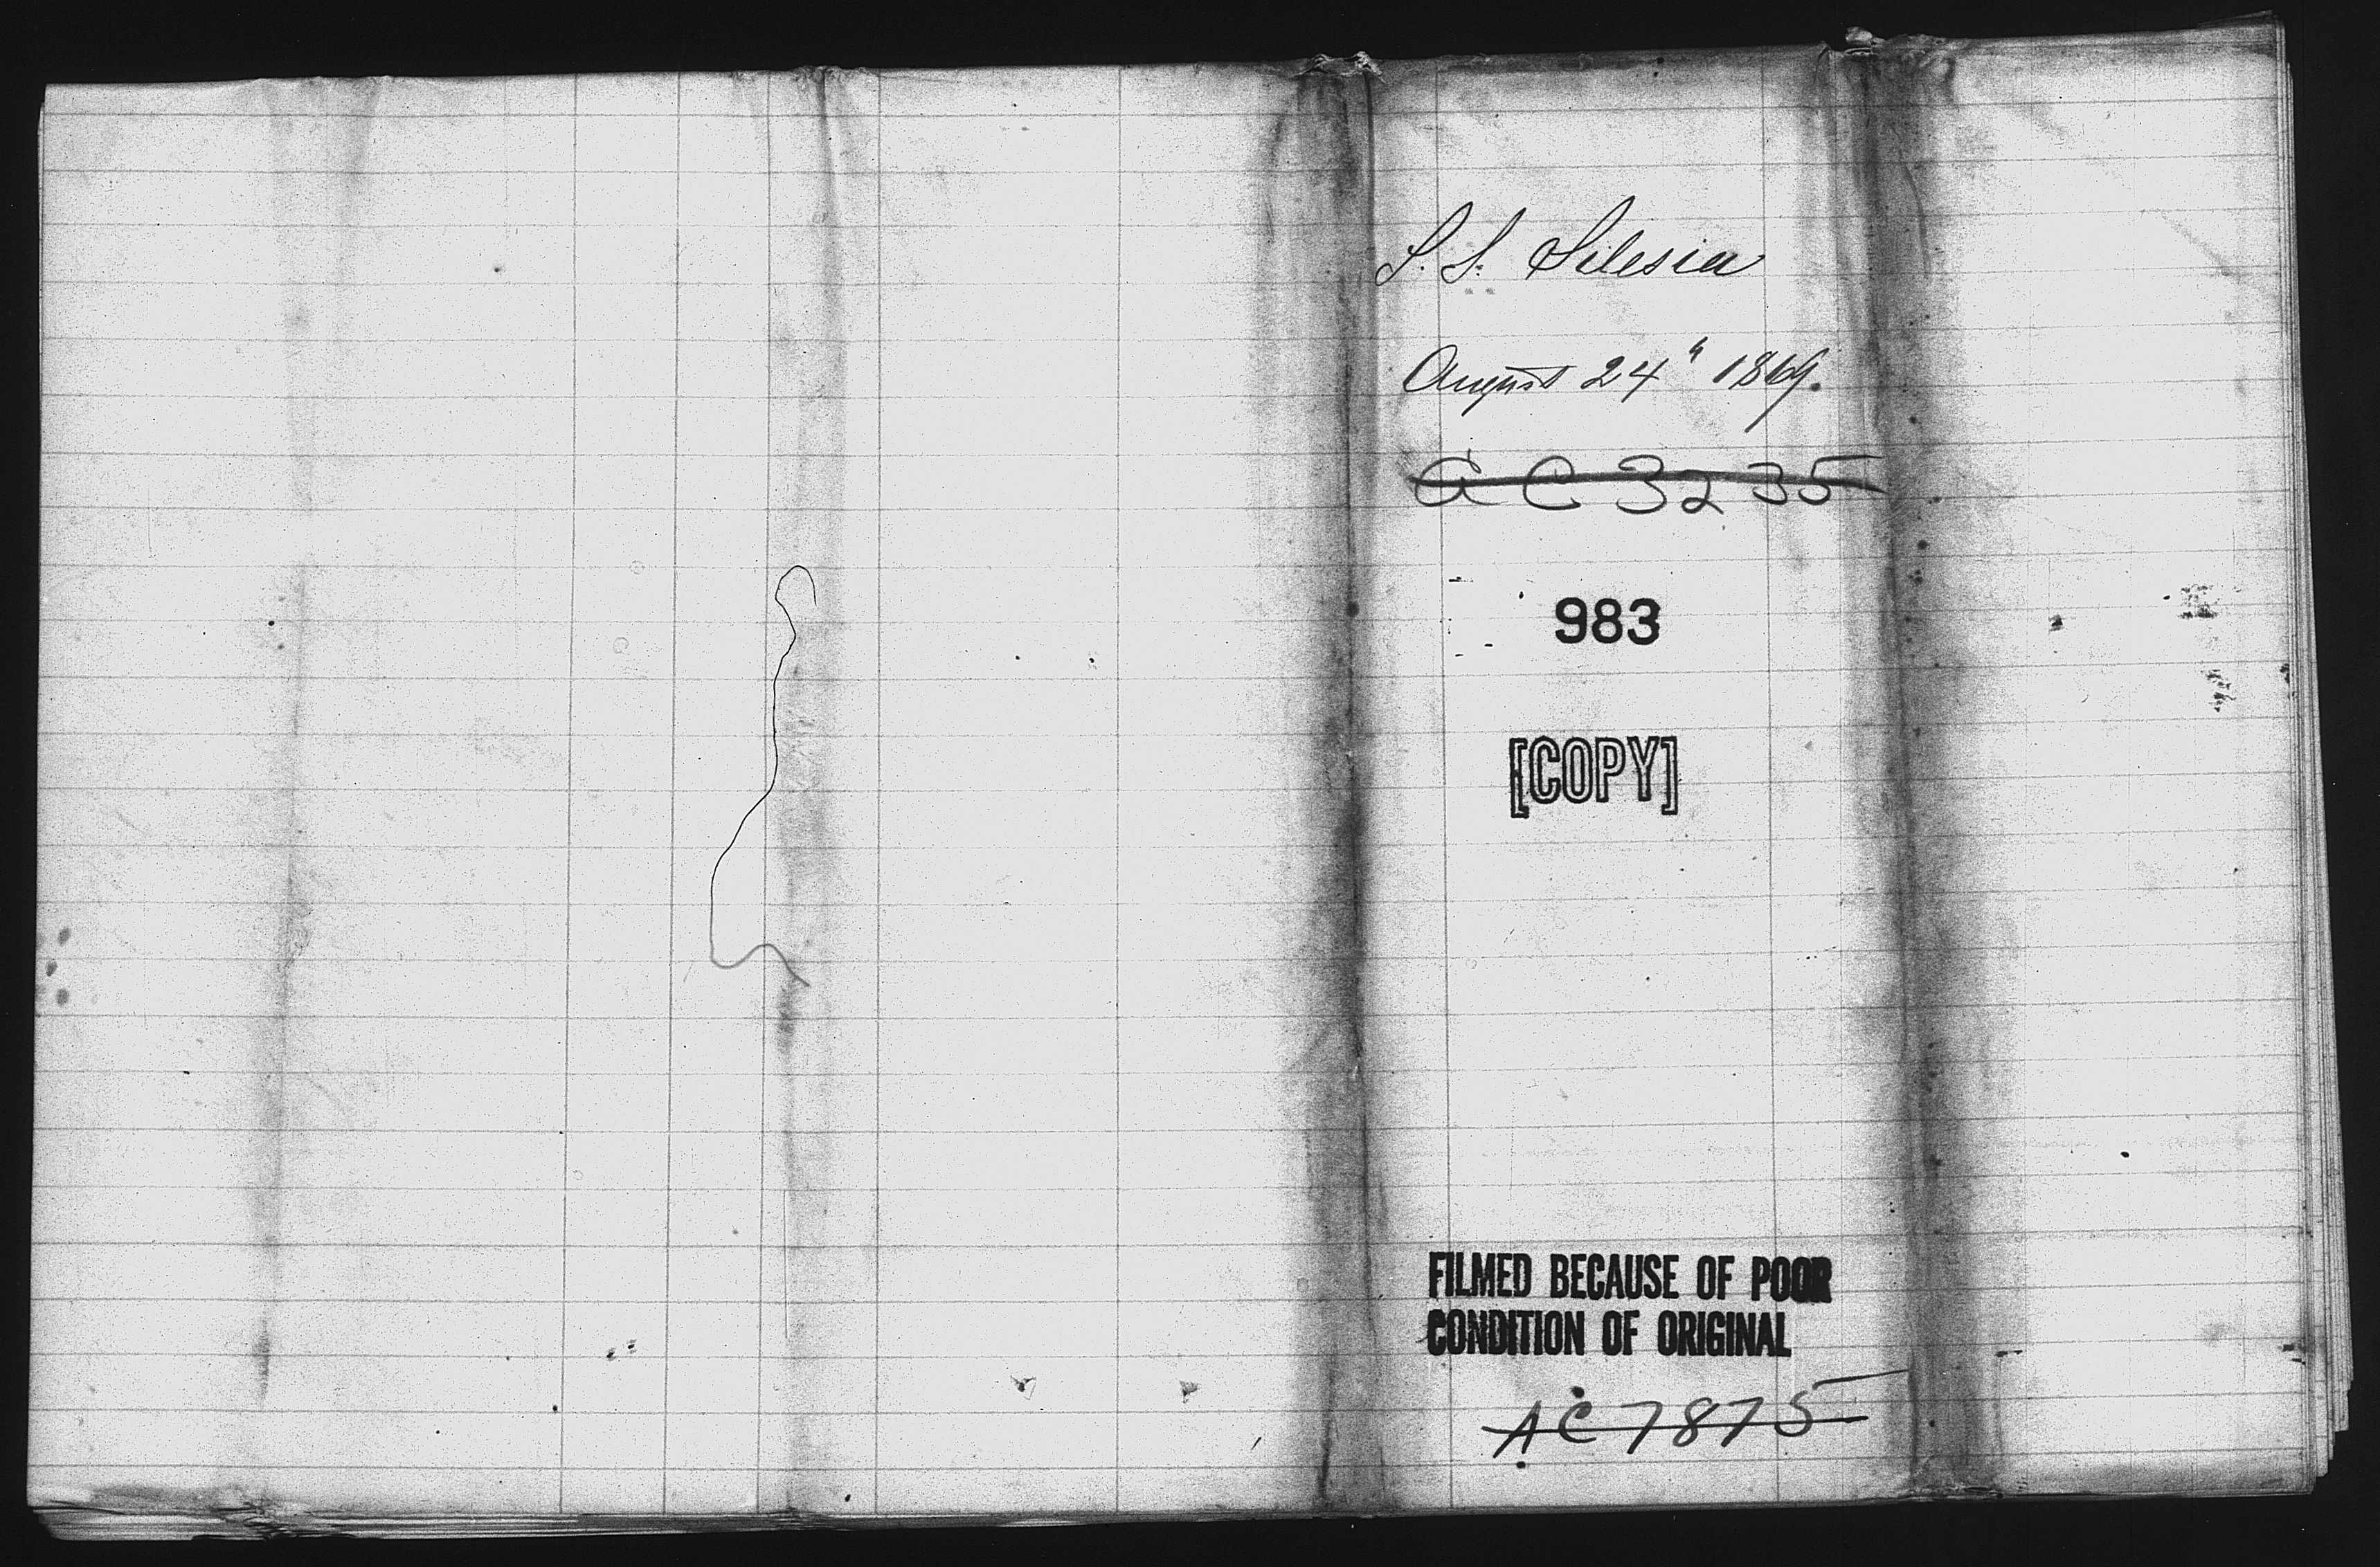 S. S. Silesia
August 24" 1869.
AC 3235
983
[COPY]
FILMED BECAUSE OF POOR
CONDITION OF ORIGINAL
AC 7875